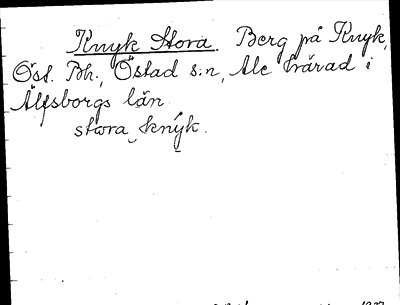 Knyk Stora. Berg på Knyk,
Öst. Bh., Östad s:n, Ale härad i
Älfsborgs län.
stora knyk.